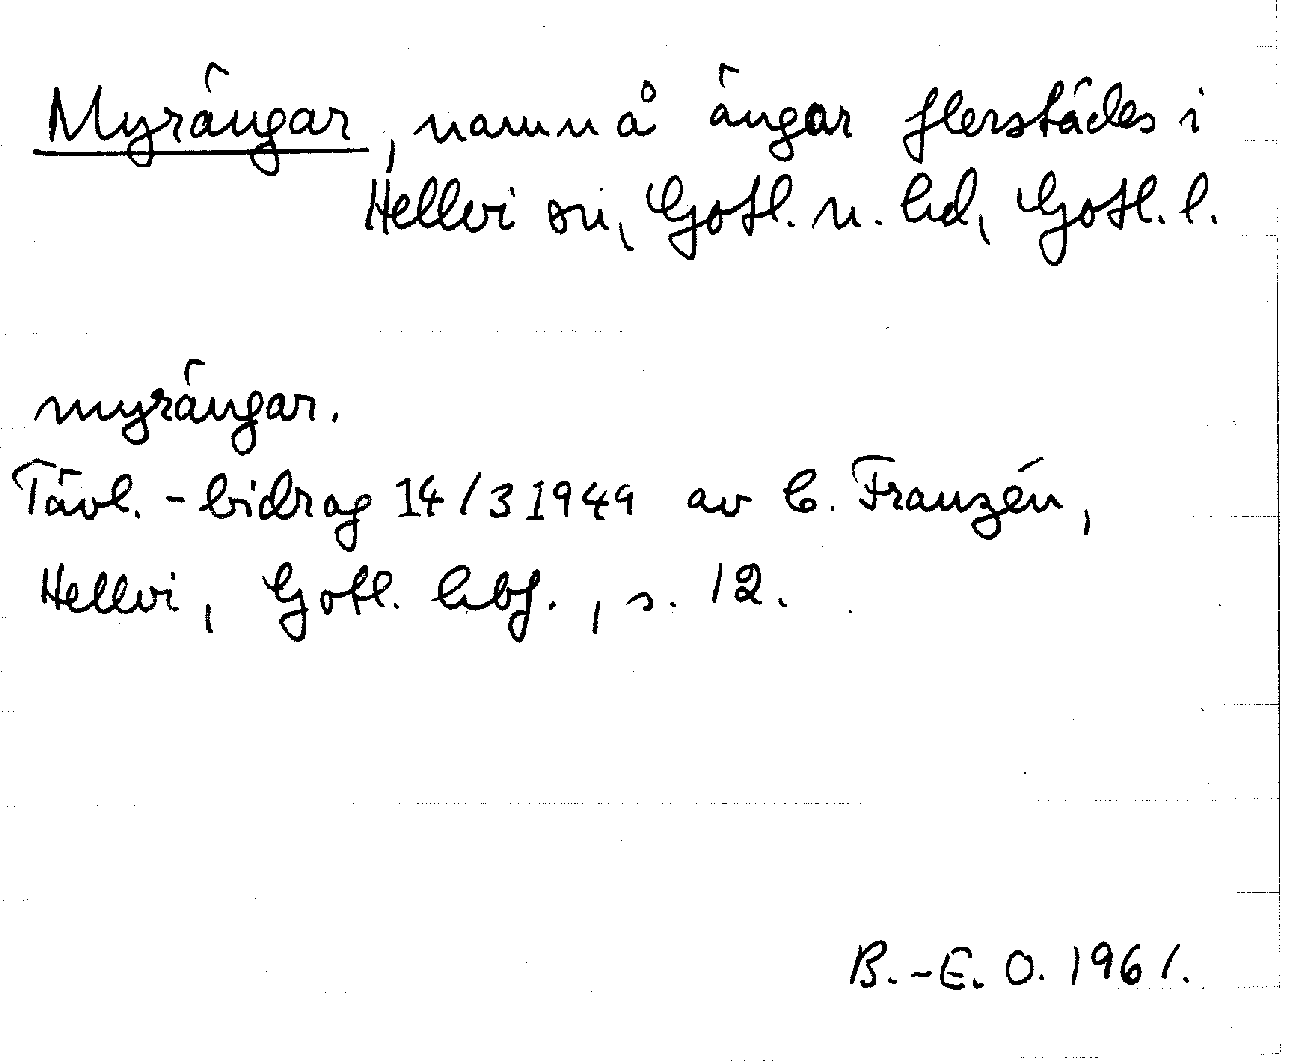 Myrängar, namn å ängar flerstädes i
Hellvi sn, Gotl. n. hd, Gotl. l.
myrängar.
Tävl.-bidrag 14/3 1949 av C. Franzén,
Hellvi, Gotl. hbf., s. 12.
B.-E. O. 1961.